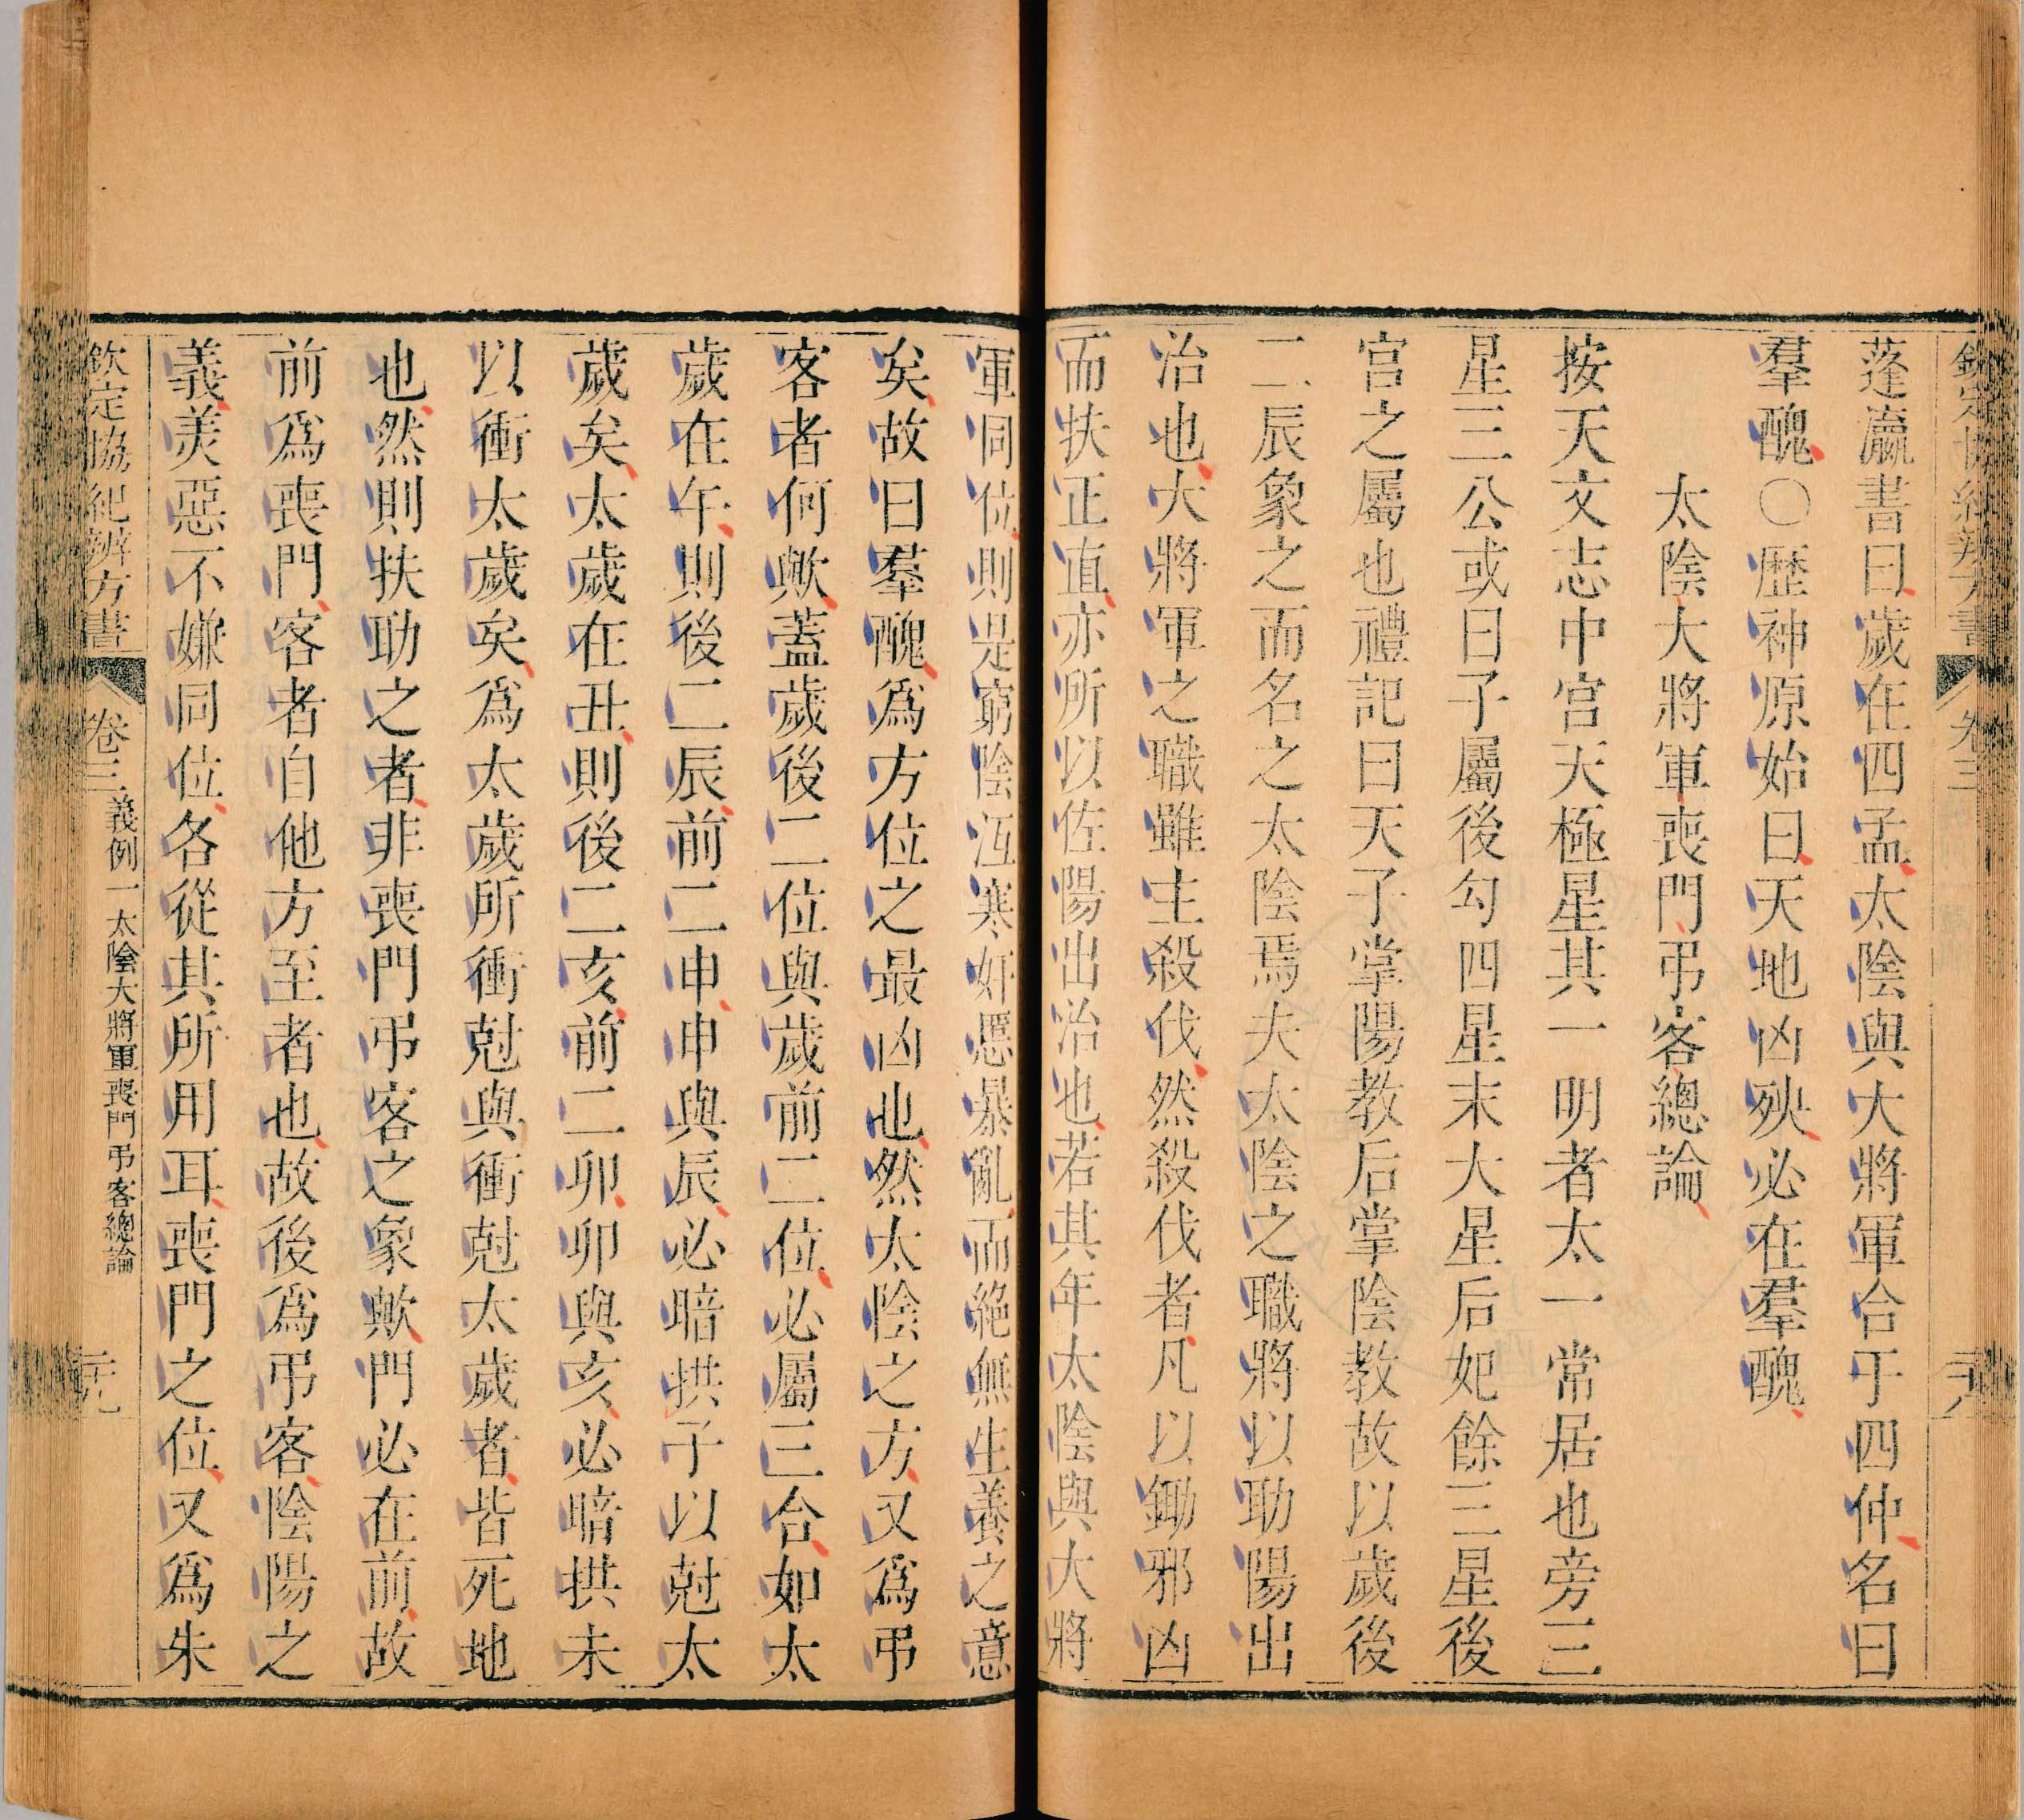 欽定協紀辨方書 卷三
蓬瀛書曰歲在四孟太陰與大將軍合于四仲名曰
羣醜〇歷神原始曰天地凶殃必在羣醜
太陰大將軍喪門弔客總論
按天文志中宮天極星其一明者太一常居也旁三
星三公或曰子屬後勾四星末大星后妃餘三星後
宮之屬也禮記曰天子掌陽教后掌陰教故以歲後
二辰象之而名之太陰焉夫太陰之職將以助陽出
治也大將軍之職雖主殺伐然殺伐者凡以鋤邪凶
而扶正直亦所以佐陽出治也若其年太陰與大將
軍同位則是窮陰沍寒奸慝暴亂而絕無生養之意
矣故曰羣醜為方位之最凶也然太陰之方又為弔
客者何歟蓋歲後二位與歲前二位必屬三合如太
歲在午則後二辰前二申申與辰必暗拱子以尅太
歲矣太歲在丑則後二亥前二卯卯與亥必暗拱未
以衝太歲矣為太歲所衝尅與衝尅太歲者皆死地
也然則扶助之者非喪門弔客之象歟門必在前故
前為喪門客者自他方至者也故後為弔客陰陽之
義美惡不嫌同位各從其所用耳喪門之位又為朱
欽定協紀辨方書 卷三 義例一 太陰大將軍喪門弔客總論 二十九